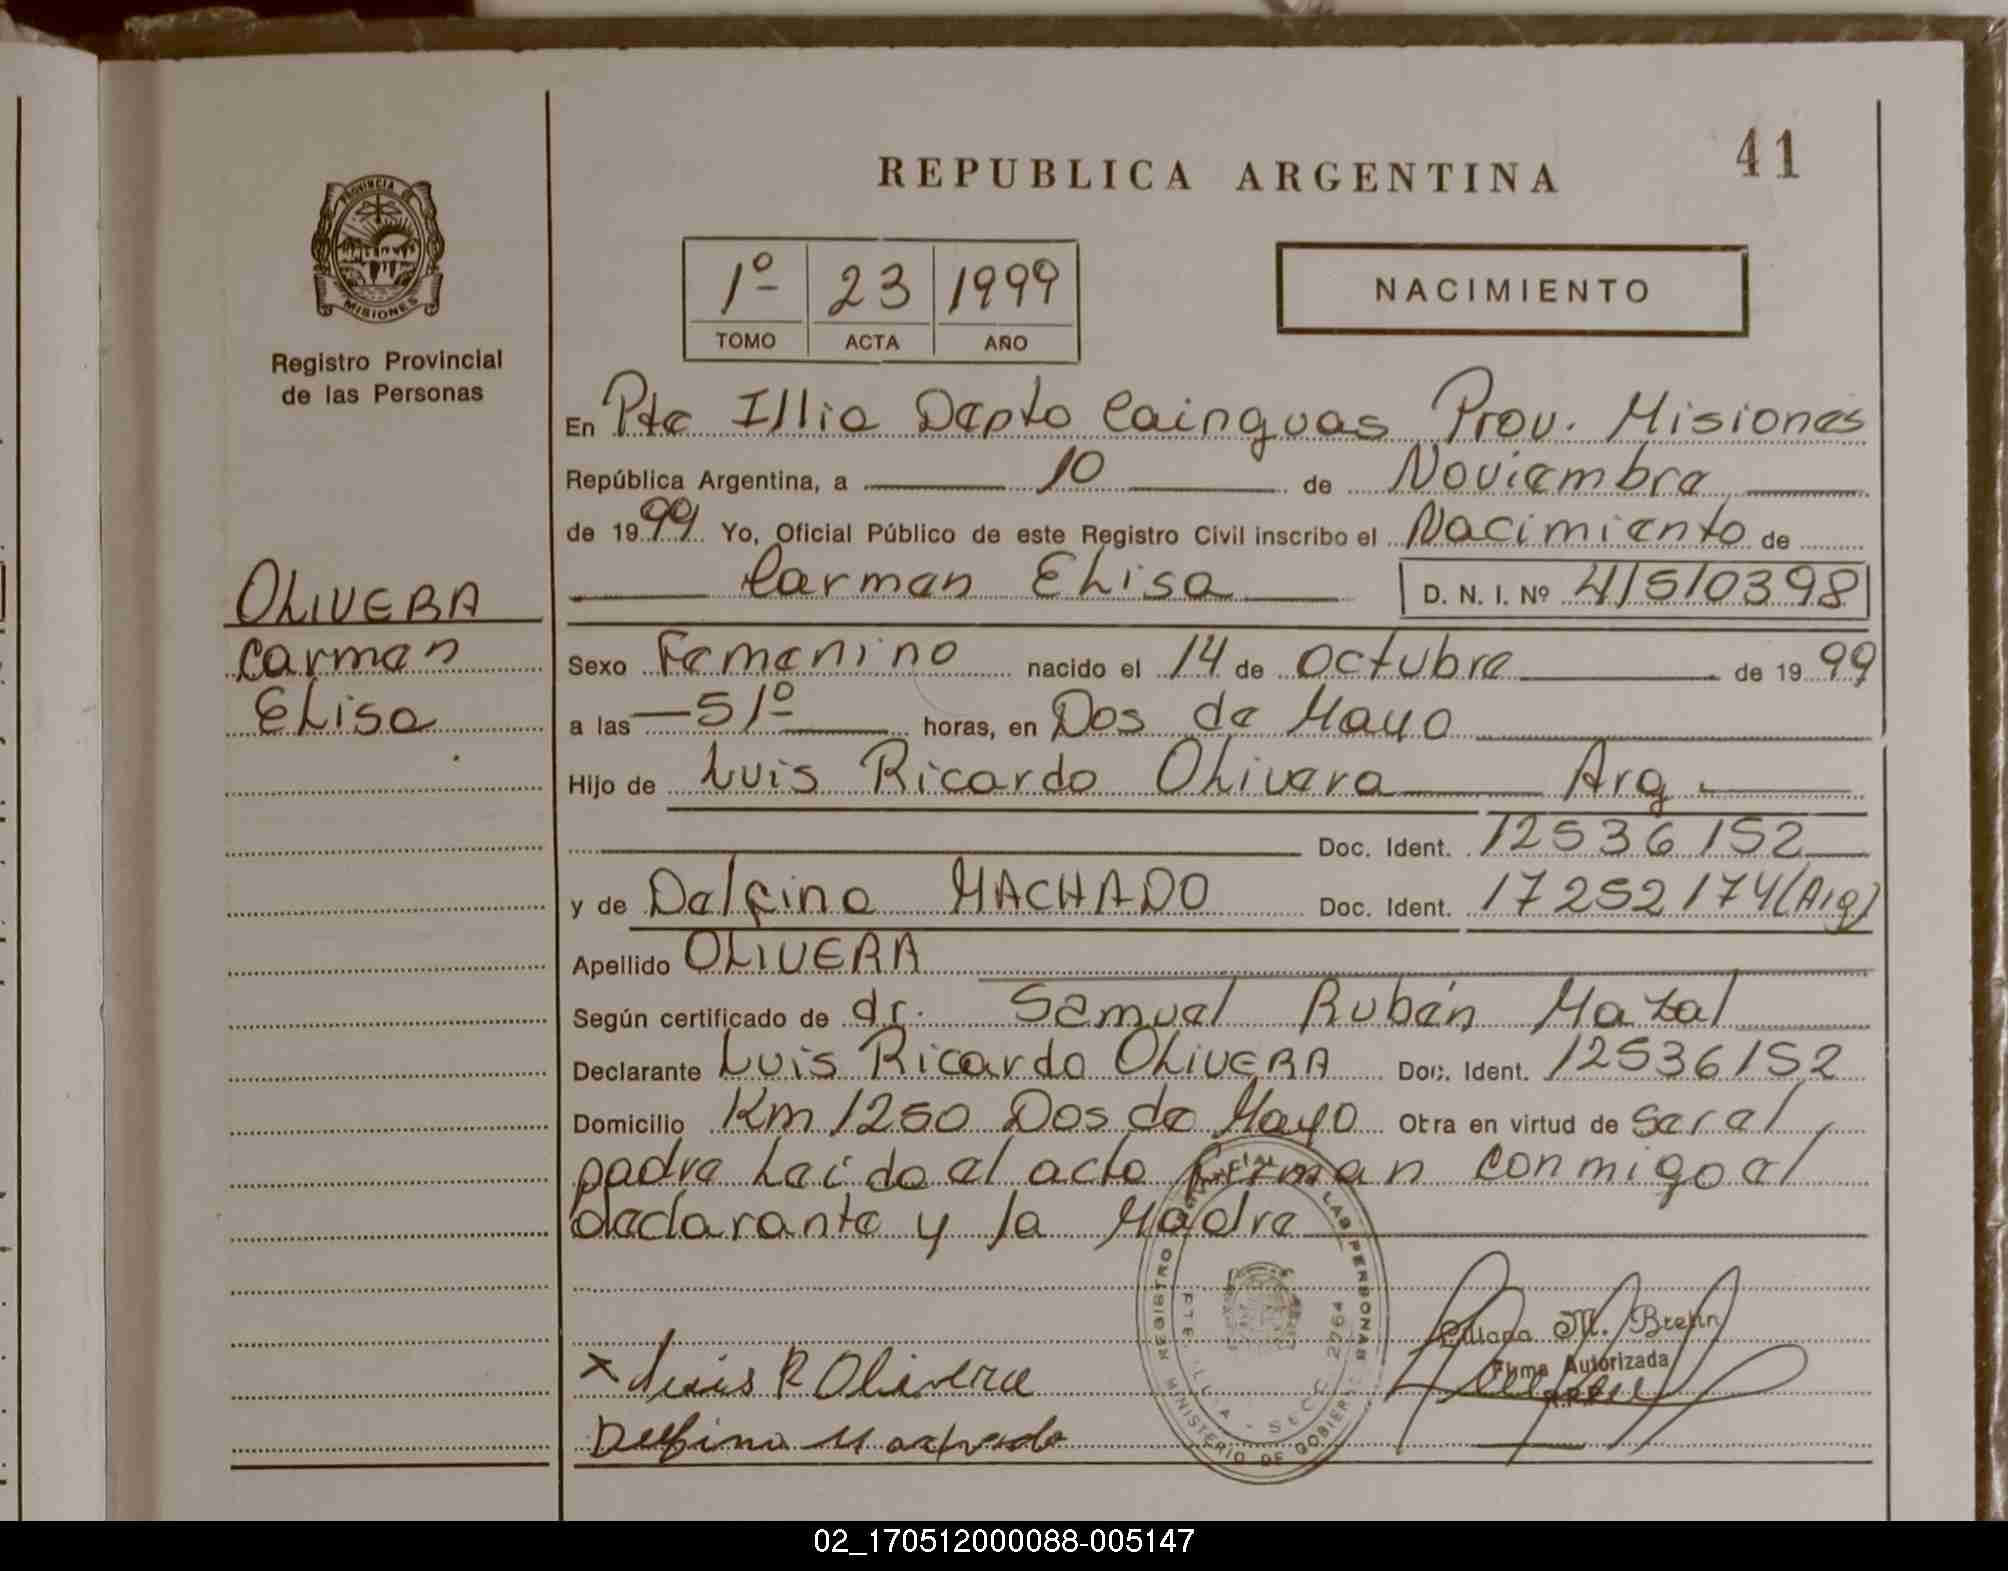 41
REPUBLICA ARGENTINA
PROVINCIA DE
MISIONES
Registro Provincial
de las Personas
1º 23 1999
TOMO ACTA AÑO
NACIMIENTO
OLIVERA
Carmen
Elisa
En Pte Illia Depto Cainguas Prov. Misiones
República Argentina, a 10 de Noviembre
de 1999 Yo, Oficial Público de este Registro Civil inscribo el Nacimiento de
Carmen Elisa D. N. I. Nº 41510398
Sexo Femenino nacido el 14 de octubre de 1999
a las 51º horas, en Dos de Mayo
Hijo de Luis Ricardo Olivera Arg
Doc. Ident. 12536152
y de Delfina MACHADO Doc. Ident. 17252174 (Arg)
Apellido OLIVERA
Según certificado de dr. Samuel Rubén Mazal
Declarante Luis Ricardo OLIVERA Doc. Ident. 12536152
Domicilio Km 1250 Dos de Mayo Otra en virtud de ser el
padre Leído el acto firman conmigo el
declarante y la Madre
REGISTRO PROVINCIAL DE LAS PERSONAS
MINISTERIO DE GOBIERNO
PTE. ILLIA - SECC. 2764
x Luis R Olivera
Delfina Machado
Liliana M. Brehn
Firma Autorizada
R.P.P.
02_170512000088-005147